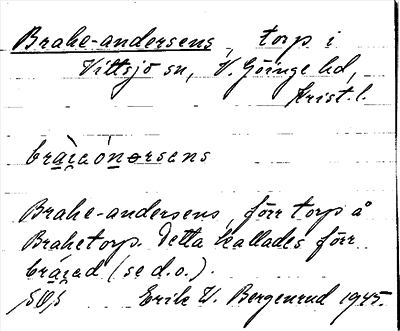 Brahe-andersens, torp i
Vittsjö sn, V. Göinge hd,
Krist. l.
Brahe-andersens, förr torp å
Brahetorp. Detta kallades förr
(se d.o.).
Erik W. Bergenrud 1945.